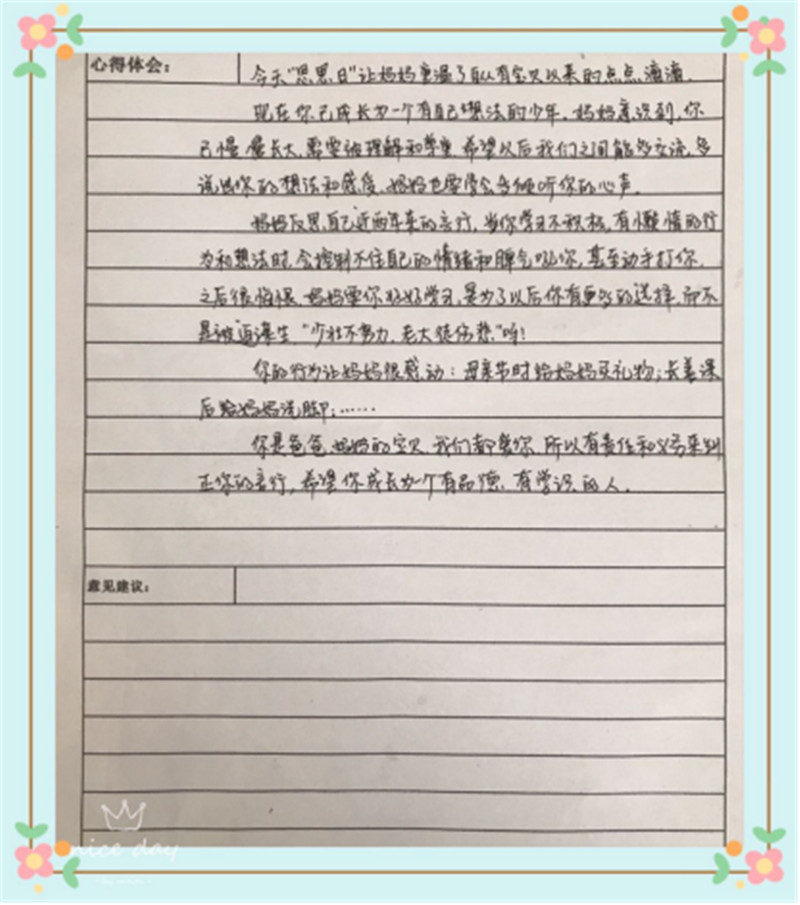 心得体会：
今天"恩思日"让妈妈重温了自从有宝贝以来的点点滴滴。
现在你已成长为一个有自己想法的少年，妈妈意识到，你
已慢慢长大，需要被理解和尊重。希望以后我们之间能多交流，多
说出你的想法和感受，妈妈也要学会多倾听你的心声。
妈妈反思自己近两年来的言行，当你学习不积极，有懒惰的行
为和想法时，会控制不住自己的情绪和脾气吼你，甚至动手打你。
之后很悔恨。妈妈要你好好学习，是为了以后你有更多的选择，而不
是被逼谋生，"少壮不努力，老大徒伤悲"呀！
你的行为让妈妈很感动：母亲节时给妈妈买礼物；长善课
后给妈妈洗脚；……
你是爸爸、妈妈的宝贝，我们都爱你，所以有责任和义务来纠
正你的言行，希望你成长为一个有品德、有学识的人。
意见建议：
nice day